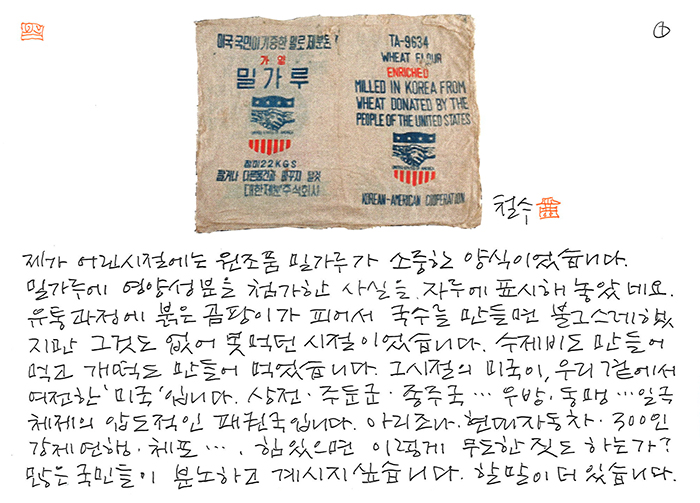 ①
미국 국민이 기증한 밀로 제분된
밀가루
UNITED STATES OF AMERICA
정미22KGS
팔거나 다른물건과 바꾸지 말것
대한제분주식회사
TA-9634
WHEAT FLOUR
ENRICHED
MILLED IN KOREA FROM
WHEAT DONATED BY THE
PEOPLE OF THE UNITED STATES
UNITED STATES OF AMERICA
KOREAN-AMERICAN COOPERATION
철수
제가 어린시절에는 원조품 밀가루가 소중한 양식이었습니다.
밀가루에 영양성분을 첨가한 사실을, 자루에 표시해 놓았네요.
유통과정에 붉은 곰팡이가 피어서 국수를 만들면 불그스레했
지만 그것도 없어 못먹던 시절이었습니다. 수제비도 만들어
먹고 개떡도 만들어 먹었습니다. 그시절의 미국이, 우리 곁에서
여전한 '미국'입니다. 상전·주둔군·종주국… 우방·동맹…일극
체제의 압도적인 패권국입니다. 아리조나·현대자동차·300인
강제연행·체포…. 힘있으면 이렇게 무도한 짓도 하는가?
많은 국민들이 분노하고 계시지 싶습니다. 할말이 더 있습니다.